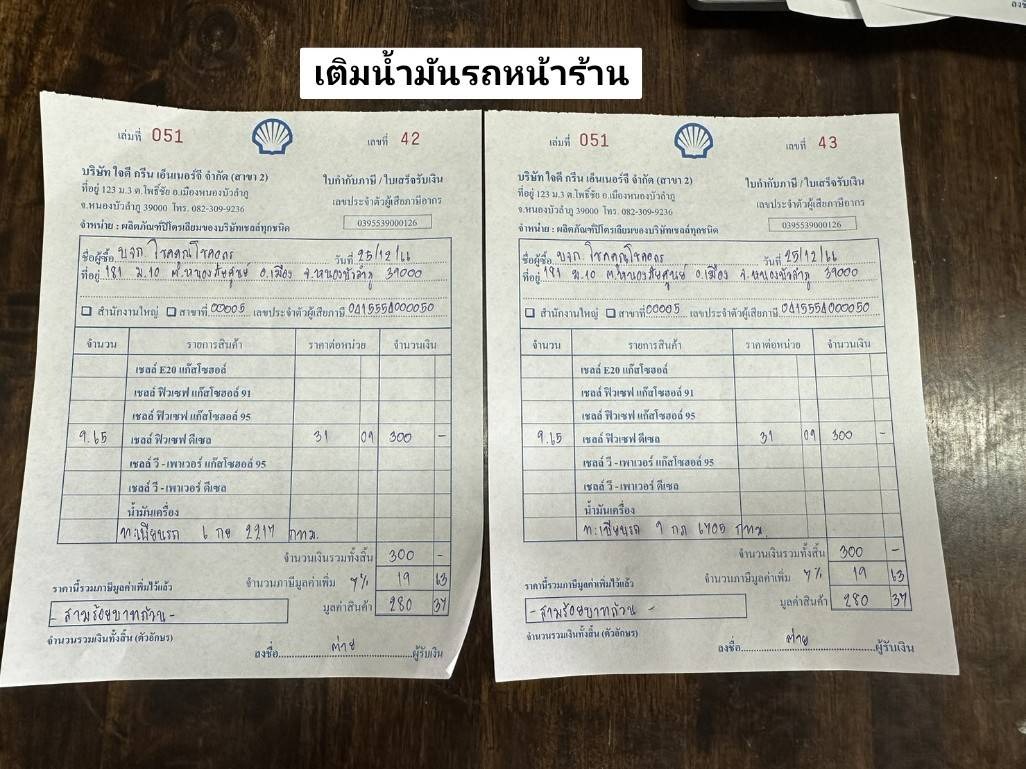 เติมน้ำมันรถหน้าร้าน
เล่มที่ 051
เลขที่ 42
บริษัท ใจดี กรีน เอ็นเนอร์จี จำกัด (สาขา 2)
ที่อยู่ 123 ม.3 ต.โพธิ์ชัย อ.เมืองหนองบัวลำภู
จ.หนองบัวลำภู 39000 โทร. 082-309-9236
ใบกำกับภาษี / ใบเสร็จรับเงิน
เลขประจำตัวผู้เสียภาษีอากร
0395539000126
จำหน่าย : ผลิตภัณฑ์ปิโตรเลียมของบริษัทเชลล์ทุกชนิด
ชื่อผู้ซื้อ บจก. โชคคูณโชคอดร วันที่ 25/12/66
ที่อยู่ 181 ม.10 ต.หนองภัยศูนย์ อ.เมือง จ.หนองบัวลำภู 39000
สำนักงานใหญ่ สาขาที่ 00005 เลขประจำตัวผู้เสียภาษี
จำนวน รายการสินค้า ราคาต่อหน่วย จำนวนเงิน
เชลล์ E20 แก๊สโซฮอล์
เชลล์ ฟิวเซฟ แก๊สโซฮอล์ 91
เชลล์ ฟิวเซฟ แก๊สโซฮอล์ 95
9.65 เชลล์ ฟิวเซฟ ดีเซล 31 09 300 -
เชลล์ วี - เพาเวอร์ แก๊สโซฮอล์ 95
เชลล์ วี - เพาเวอร์ ดีเซล
น้ำมันเครื่อง
ทะเบียนรถ 6 กย 2217 กทม.
จำนวนเงินรวมทั้งสิ้น 300 -
ราคานี้รวมภาษีมูลค่าเพิ่มไว้แล้ว
จำนวนภาษีมูลค่าเพิ่ม 7% 19 63
- สามร้อยบาทถ้วน -
มูลค่าสินค้า 280 37
จำนวนรวมเงินทั้งสิ้น (ตัวอักษร)
ลงชื่อ ต่าย ผู้รับเงิน
เล่มที่ 051
เลขที่ 43
บริษัท ใจดี กรีน เอ็นเนอร์จี จำกัด (สาขา 2)
ที่อยู่ 123 ม.3 ต.โพธิ์ชัย อ.เมืองหนองบัวลำภู
จ.หนองบัวลำภู 39000 โทร. 082-309-9236
ใบกำกับภาษี / ใบเสร็จรับเงิน
เลขประจำตัวผู้เสียภาษีอากร
0395539000126
จำหน่าย : ผลิตภัณฑ์ปิโตรเลียมของบริษัทเชลล์ทุกชนิด
ชื่อผู้ซื้อ บจก. โชคคูณโชคอดร วันที่ 25/12/66
ที่อยู่ 181 ม.10 ต.หนองภัยศูนย์ อ.เมือง จ.หนองบัวลำภู 39000
สำนักงานใหญ่ สาขาที่ 00005 เลขประจำตัวผู้เสียภาษี
จำนวน รายการสินค้า ราคาต่อหน่วย จำนวนเงิน
เชลล์ E20 แก๊สโซฮอล์
เชลล์ ฟิวเซฟ แก๊สโซฮอล์ 91
เชลล์ ฟิวเซฟ แก๊สโซฮอล์ 95
9.65 เชลล์ ฟิวเซฟ ดีเซล 31 09 300 -
เชลล์ วี - เพาเวอร์ แก๊สโซฮอล์ 95
เชลล์ วี - เพาเวอร์ ดีเซล
น้ำมันเครื่อง
ทะเบียนรถ 6705 กทม.
จำนวนเงินรวมทั้งสิ้น 300 -
ราคานี้รวมภาษีมูลค่าเพิ่มไว้แล้ว
จำนวนภาษีมูลค่าเพิ่ม 7% 19 63
- สามร้อยบาทถ้วน -
มูลค่าสินค้า 280 37
จำนวนรวมเงินทั้งสิ้น (ตัวอักษร)
ลงชื่อ ต่าย ผู้รับเงิน